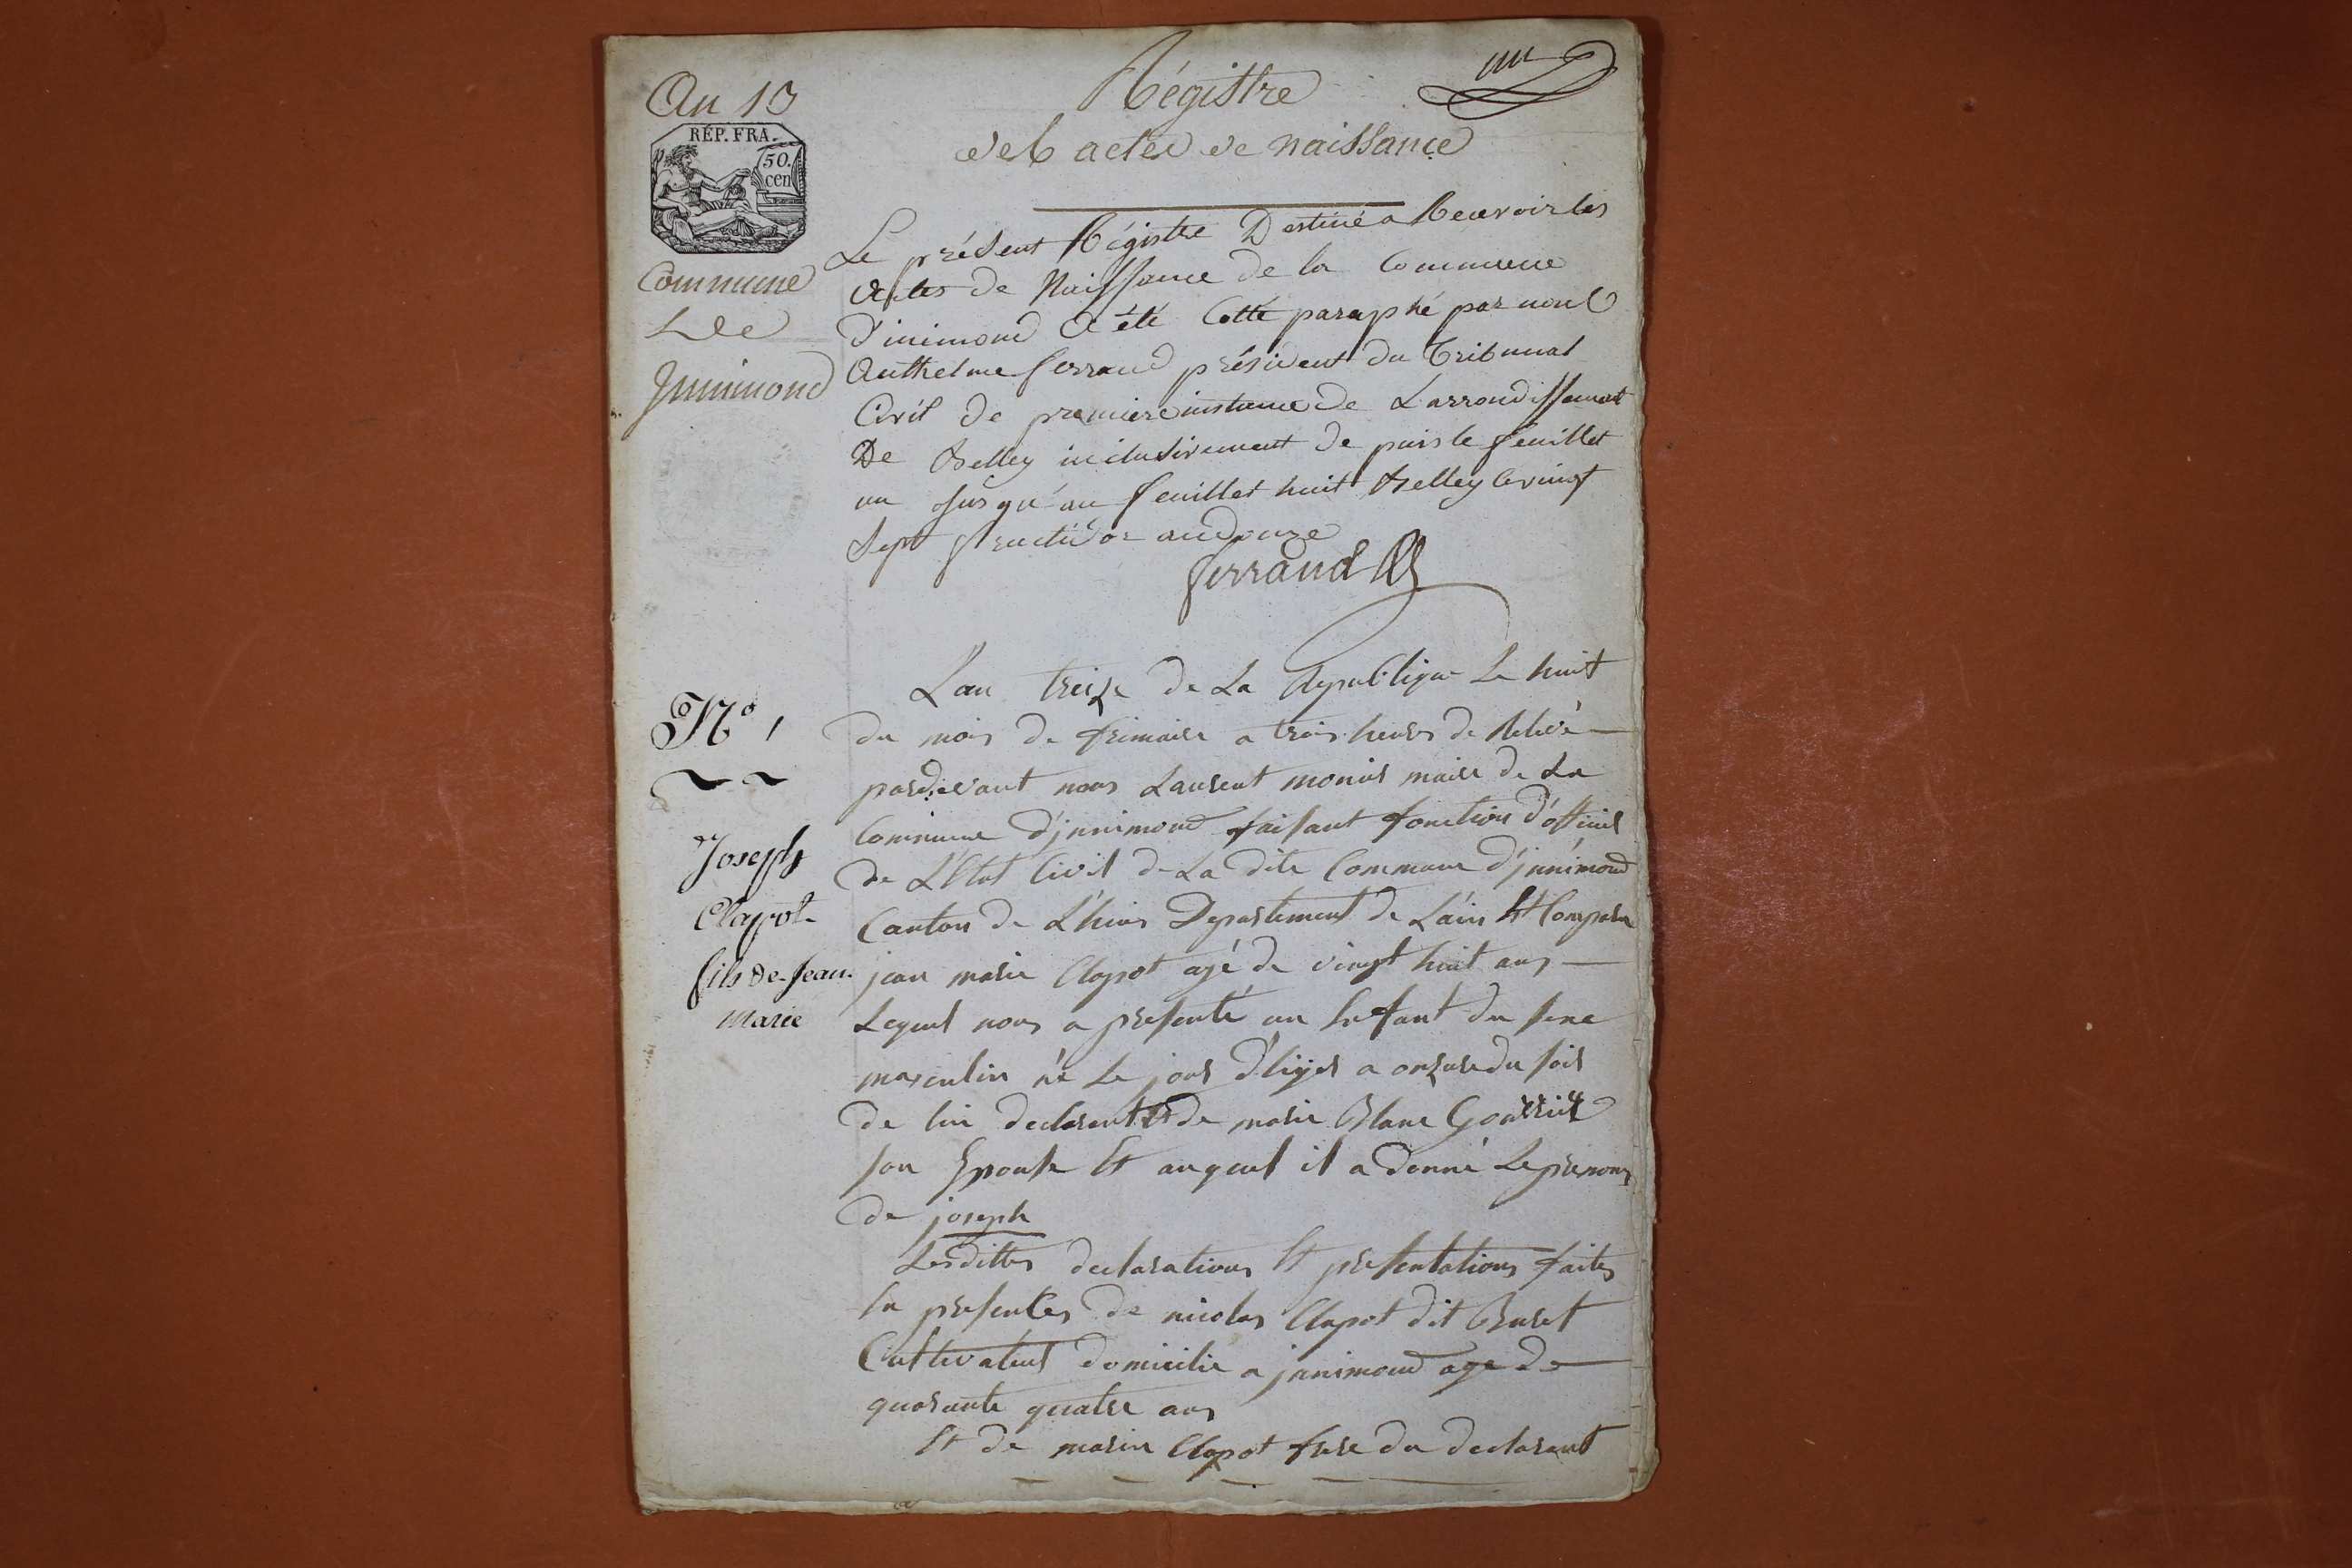 An 13
Régistre
un
des actes de naissance
RÉP. FRA.
50.
cen
Commune
de
Jnnimond
Le présent Régistre Destiné a Recevoir les
actes de Naissance de la Commune
d'inimond a été Cotté paraphé par nous
Anthelme ferrand président du Tribunal
Civil de premiere instance de Larrondissement
De Belley inclusivement de puis le feuillet
un jusqu'au feuillet huit Belley le vingt
Sept fructidor an douze
ferrand
N° 1
Joseph
Clapot
fils de Jean
Marie
L'an treize de La Republique Le huit
du mois de frimaire a trois heures de Relevé
pardevant nous Laurent monier maire de La
Commune d'jnnimond faisant fonction d'officier
de L'Etat Civil de La dite Commune d'jnnimond
Canton de L'huis Departement de L'ain Est Comparu
jean marie Clapot agé de vingt huit ans
Lequel nous a presenté un Enfant du sexe
masculin né Le jour d'hyer a onze du soir
de lui declarant Et de marie Blanc
son Epouse Et auquel il a donné Le prenom
de joseph
Lesdittes declarations Et presentations faites
En presences de nicolas Clapot dit Buret
Cultivateur domicilié a jnnimond age de
quarante quatre ans
Et de marin Clapot frere du declarant